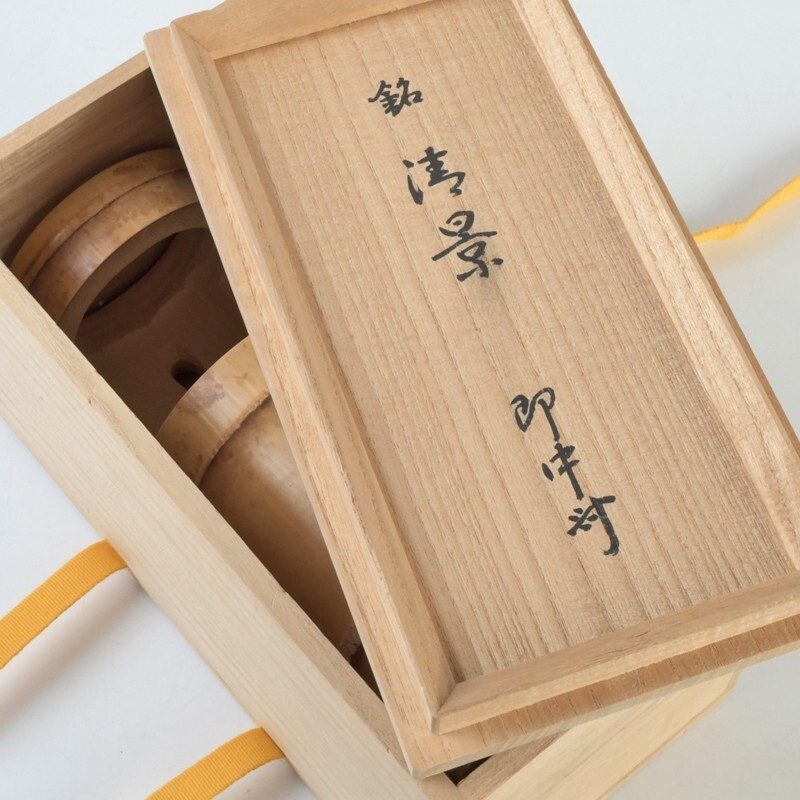 銘
清景
即中斎